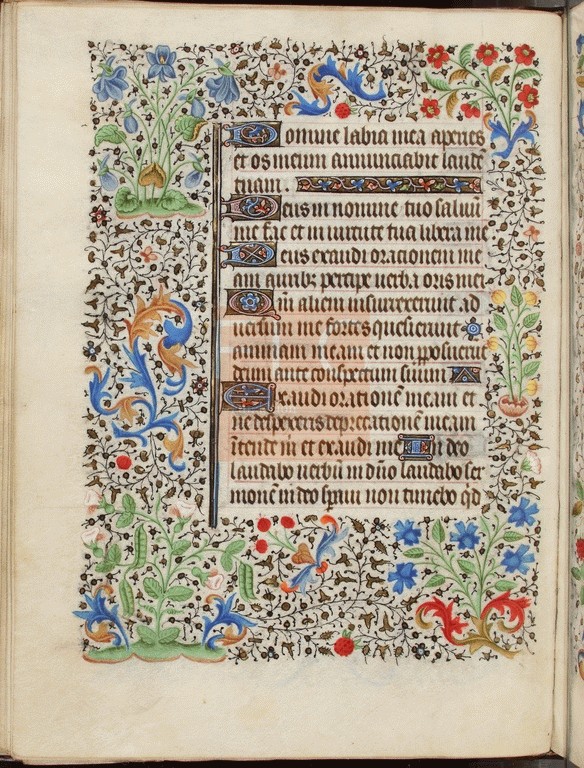 Domine labia mea aperies
et os meum annunciabit laudē
tuam.
Deus in nomine tuo saluū
me fac et in uirtute tua libera me
Deus exaudi orationem me
am auribꝫ percipe uerba oris mei
Qm̄ alieni insurrexerunt ad
uersum me fortes quesierunt
animam meam et non pposuerūt
deum ante conspectum suum
Exaudi orationē meam et
ne despexeris deprecationē meam
ītende m̄ et exaudi me In deo
laudabo uerbū in dn̄o laudabo ser
monē in deo spaui non timebo qd